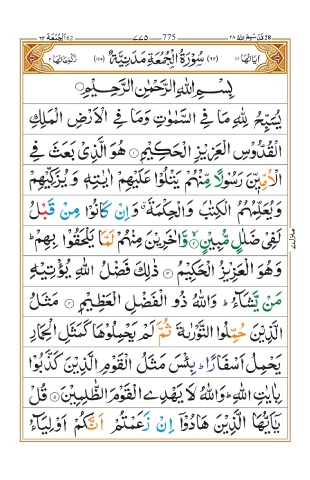 قد سمع الله ٢٨ 28 775 ٧٧٥ الجمعة ٦٢ 62
اٰيَاتُهَا ١١ (٦٢) سُوْرَةُ الْجُمُعَةِ مَدَنِيَّةٌ (١١٠) رُكُوْعَاتُهَا ٢
بِسْمِ اللّٰهِ الرَّحْمٰنِ الرَّحِيْمِ
يُسَبِّحُ لِلّٰهِ مَا فِى السَّمٰوٰتِ وَمَا فِى الْاَرْضِ الْمَلِكِ
الْقُدُّوْسِ الْعَزِيْزِ الْحَكِيْمِ ۝١ هُوَ الَّذِىْ بَعَثَ فِى
الْاُمِّيّٖنَ رَسُوْلًا مِّنْهُمْ يَتْلُوْا عَلَيْهِمْ اٰيٰتِهٖ وَيُزَكِّيْهِمْ
وَيُعَلِّمُهُمُ الْكِتٰبَ وَالْحِكْمَةَ ۗ وَاِنْ كَانُوْا مِنْ قَبْلُ
لَفِىْ ضَلٰلٍ مُّبِيْنٍ ۝٢ وَّاٰخَرِيْنَ مِنْهُمْ لَمَّا يَلْحَقُوْا بِهِمْ ؕ
وَهُوَ الْعَزِيْزُ الْحَكِيْمُ ۝٣ ذٰلِكَ فَضْلُ اللّٰهِ يُؤْتِيْهِ
مَنْ يَّشَآءُ ؕ وَاللّٰهُ ذُو الْفَضْلِ الْعَظِيْمِ ۝٤ مَثَلُ
الَّذِيْنَ حُمِّلُوا التَّوْرٰىةَ ثُمَّ لَمْ يَحْمِلُوْهَا كَمَثَلِ الْحِمَارِ
يَحْمِلُ اَسْفَارًا ؕ بِئْسَ مَثَلُ الْقَوْمِ الَّذِيْنَ كَذَّبُوْا
بِاٰيٰتِ اللّٰهِ ؕ وَاللّٰهُ لَا يَهْدِى الْقَوْمَ الظّٰلِمِيْنَ ۝٥ قُلْ
يٰٓاَيُّهَا الَّذِيْنَ هَادُوْۤا اِنْ زَعَمْتُمْ اَنَّكُمْ اَوْلِيَآءُ